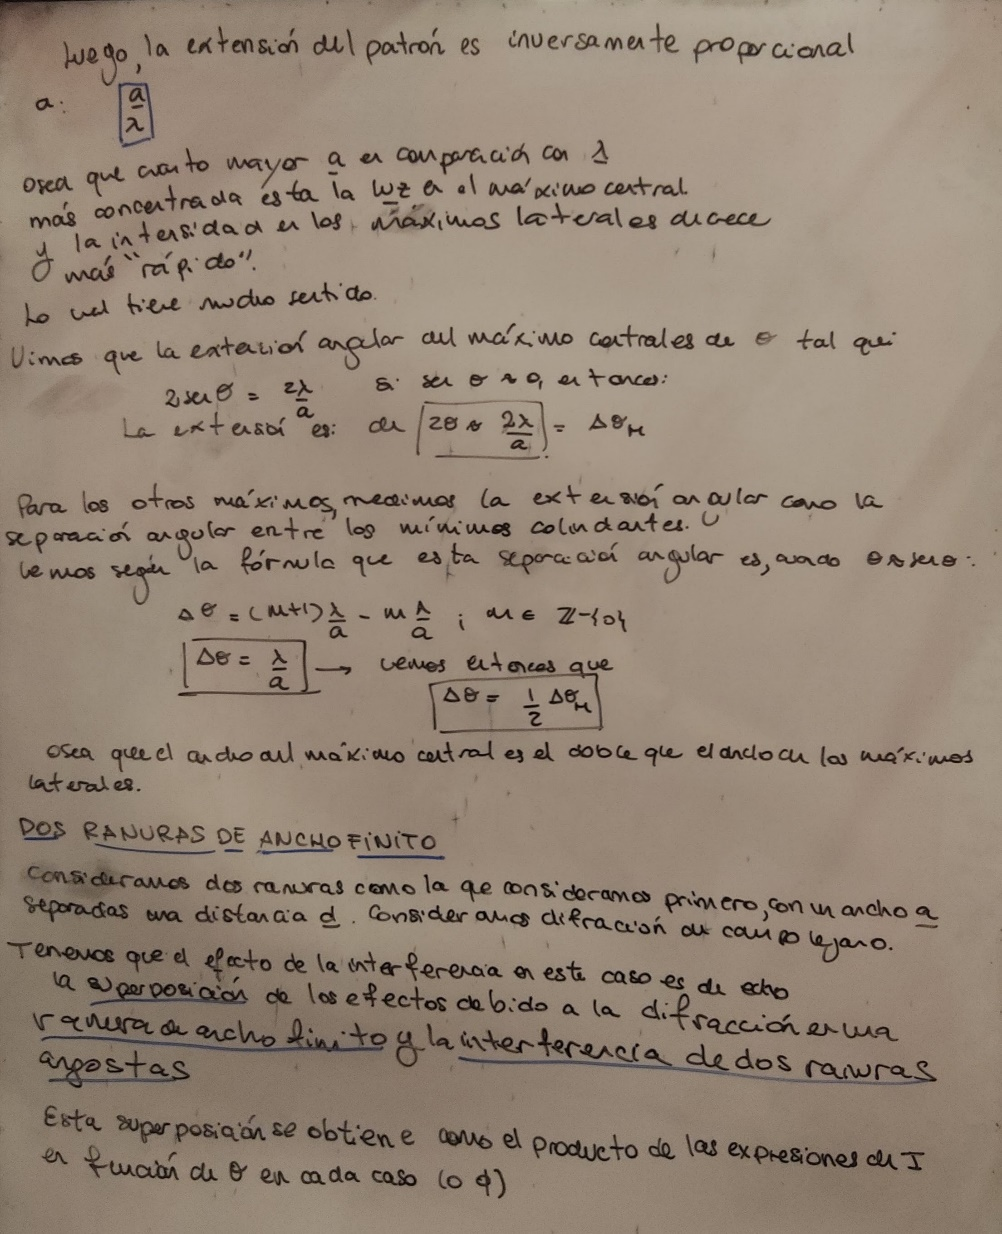 Luego, la extensión del patrón es inversamente proporcional
a: a/λ
Osea que cuanto mayor a en comparación con λ
más concentrada esta la luz en el máximo central
y la intensidad en los máximos laterales decrece
más "rápido".
Lo cual tiene mucho sentido.
Vimos que la extensión angular del máximo central es de θ tal que:
2 sen θ = 2λ/a si sen θ ≈ θ, entonces:
La extensión es: de 2θ ≈ 2λ/a = Δθ_M
Para los otros máximos, medimos la extensión angular como la
separación angular entre los mínimos colindantes.
Vemos según la fórmula que esta separación angular es, cuando θ≈senθ:
Δθ = (m+1) λ/a - m λ/a ; m ∈ Z-{0}
Δθ = λ/a → vemos entonces que
Δθ = 1/2 Δθ_M
Osea que el ancho del máximo central es el doble que el ancho de los máximos
laterales.
DOS RANURAS DE ANCHO FINITO
Consideramos dos ranuras como la que consideramos primero, con un ancho a
separadas una distancia d. Consideramos difracción de campo lejano.
Tenemos que el efecto de la interferencia en este caso es de echo
la superposición de los efectos debido a la difracción en una
ranura de ancho finito y la interferencia de dos ranuras
angostas
Esta superposición se obtiene como el producto de las expresiones de I
en función de θ en cada caso (o ϕ)